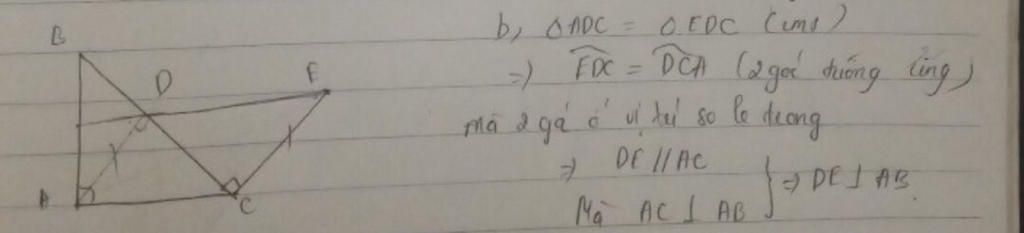 B
D
E
A
C
b, △ADC = △EDC (cmt)
=> EDC = DCA (2 góc tương ứng)
mà 2 góc ở vị trí so le trong
=> DE // AC
Mà AC ⊥ AB
=> DE ⊥ AB